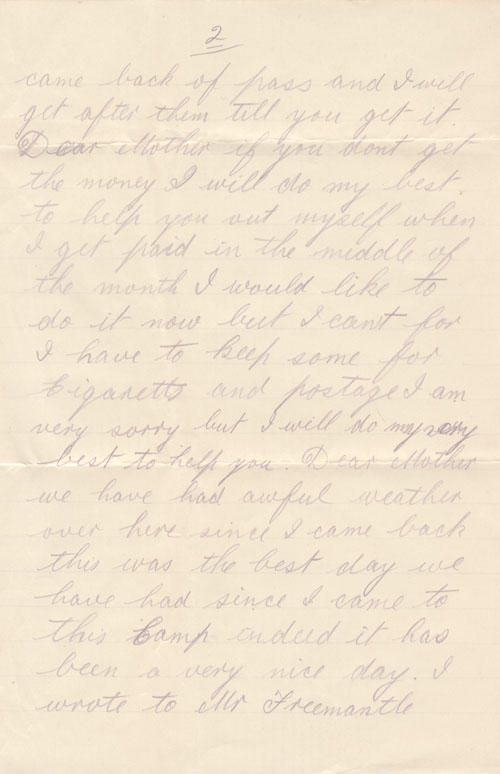 2
came back of pass and I will
get after them till you get it.
Dear Mother if you dont get
the money I will do my best.
to help you out myself when
I get paid in the middle of
the month I would like to
do it now but I cant for
I have to keep some for
Cigaretts and postage I am
very sorry but I will do my very
best to help you. Dear Mother
we have had awful weather
over here since I came back
this was the best day we
have had since I came to
this Camp indeed it has
been a very nice day. I
wrote to Mr Freemantle